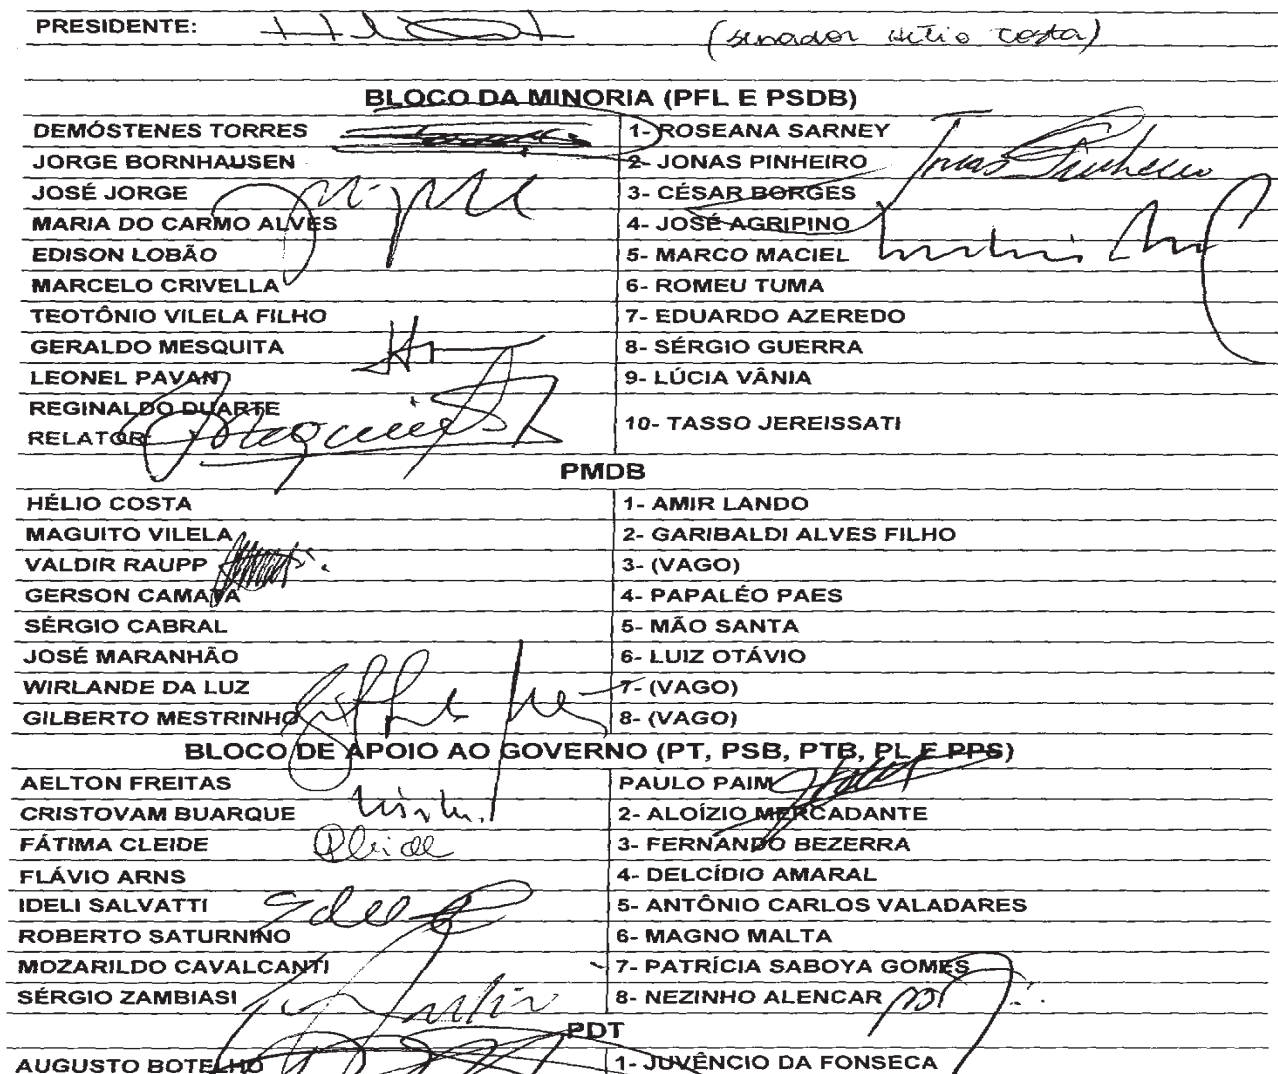 PRESIDENTE: (senador Hélio Costa)
BLOCO DA MINORIA (PFL E PSDB)
DEMÓSTENES TORRES 1- ROSEANA SARNEY
JORGE BORNHAUSEN 2- JONAS PINHEIRO Jonas Pinheiro
JOSÉ JORGE 3- CÉSAR BORGES
MARIA DO CARMO ALVES 4- JOSÉ AGRIPINO
EDISON LOBÃO 5- MARCO MACIEL
MARCELO CRIVELLA 6- ROMEU TUMA
TEOTÔNIO VILELA FILHO 7- EDUARDO AZEREDO
GERALDO MESQUITA 8- SÉRGIO GUERRA
LEONEL PAVAN 9- LÚCIA VÂNIA
REGINALDO DUARTE
RELATOR: 10- TASSO JEREISSATI
PMDB
HÉLIO COSTA 1- AMIR LANDO
MAGUITO VILELA 2- GARIBALDI ALVES FILHO
VALDIR RAUPP 3- (VAGO)
GERSON CAMATA 4- PAPALÉO PAES
SÉRGIO CABRAL 5- MÃO SANTA
JOSÉ MARANHÃO 6- LUIZ OTÁVIO
WIRLANDE DA LUZ 7- (VAGO)
GILBERTO MESTRINHO 8- (VAGO)
BLOCO DE APOIO AO GOVERNO (PT, PSB, PTB, PL E PPS)
AELTON FREITAS PAULO PAIM
CRISTOVAM BUARQUE 2- ALOÍZIO MERCADANTE
FÁTIMA CLEIDE Cleide 3- FERNANDO BEZERRA
FLÁVIO ARNS 4- DELCÍDIO AMARAL
IDELI SALVATTI 5- ANTÔNIO CARLOS VALADARES
ROBERTO SATURNINO 6- MAGNO MALTA
MOZARILDO CAVALCANTI 7- PATRÍCIA SABOYA GOMES
SÉRGIO ZAMBIASI 8- NEZINHO ALENCAR
PDT
AUGUSTO BOTELHO 1- JUVÊNCIO DA FONSECA